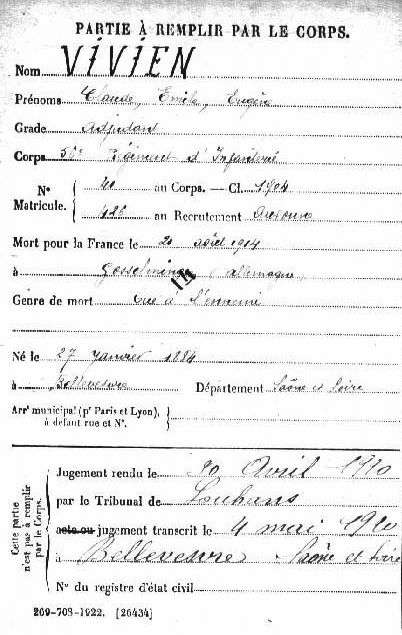 PARTIE À REMPLIR PAR LE CORPS.
Nom VIVIEN
Prénoms Claude, Emile, Eugène
Grade Adjudant
Corps 56e Régiment d'Infanterie
Nº Matricule. { 40 au Corps. — Cl. 1904
426 au Recrutement
Mort pour la France le 20 août 1914
à Gosselming Allemagne
Genre de mort tué à l'ennemi
Né le 27 Janvier 1884
à Bellevesvre Département Saône et Loire
Arrt municipal (pr Paris et Lyon), à défaut rue et Nº. }
Cette partie n'est pas à remplir par le Corps.
Jugement rendu le Avril
par le Tribunal de Louhans
acte ou jugement transcrit le 4 mai
à Bellevesvre Saône et Loire
Nº du registre d'état civil
269-708-1922. [26434]